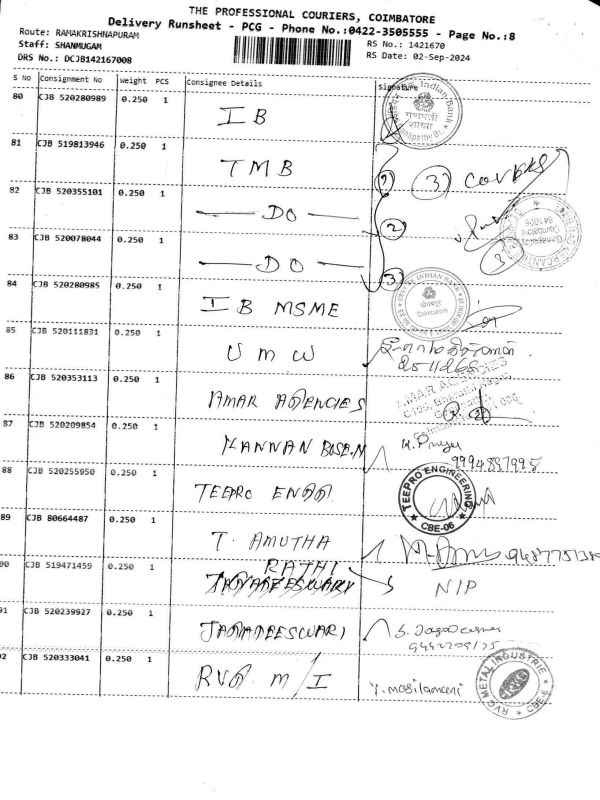 THE PROFESSIONAL COURIERS, COIMBATORE
Delivery Runsheet - PCG - Phone No.:0422-3505555 - Page No.:8
Route: RAMAKRISHNAPURAM
Staff: SHANMUGAM
DRS No.: DCJB142167008
RS No.: 1421670
RS Date: 02-Sep-2024
S No Consignment No Weight PCS Consignee Details Signature
80 CJB 520280989 0.250 1 IB
81 CJB 519813946 0.250 1 TMB 1) 3) covers
82 CJB 520355101 0.250 1 — DO — 2)
83 CJB 520078044 0.250 1 — DO — 3)
84 CJB 520280985 0.250 1 IB MSME
INDIAN BANK
85 CJB 520111831 0.250 1 UMW
86 CJB 520353113 0.250 1 AMAR AGENCIES
AMAR AGENCIES
87 CJB 520209854 0.250 1 KANNAN BOSE.N
88 CJB 520255950 0.250 1 TEEPRO ENGG
TEEPRO ENGINEERING
CBE-06
89 CJB 80664487 0.250 1 T. AMUTHA
90 CJB 519471459 0.250 1 RATHI NIP
91 CJB 520239927 0.250 1 JAGADEESWARI
92 CJB 520333041 0.250 1 RVG M/I Y. masilamani
RVG METAL INDUSTRIE
CBE-6